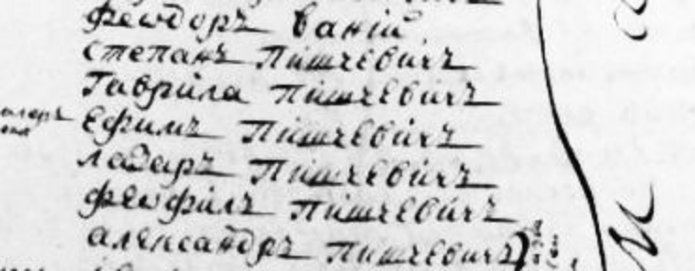 феодоръ ваніи
степанъ Пишчевичъ
Гаврила Пишчевичъ
Ефимъ Пишчевичъ
лазаръ Пишчевичъ
феофилъ Пишчевичъ
александръ Пишчевичъ